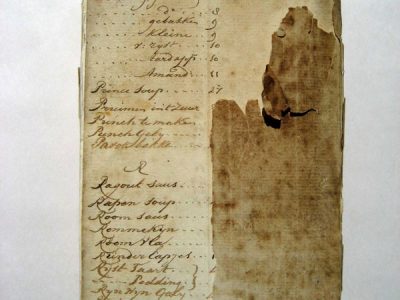 d° 8
gebakken 9
kleine 9
d: ryst 10
Eardapp 10
Amand 11
Prince Soup 27
Pruimen in't Zuur
Punch te maken
Punch Gely
R
Ragout Saus
Rapen Soup
Room Saus
Rommekyn
Room Vla
Runder Lapjes
Ryst Taart
Podding
Rynwyn Gely